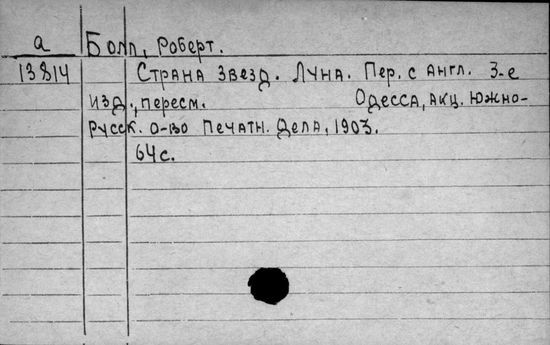 а Болл, Роберт.
13814 Страна звезд. Луна. Пер. с англ. 3-е
изд., пересм. Одесса, акц. Южно-
русск. о-во печатн. дела, 1903.
64 с.